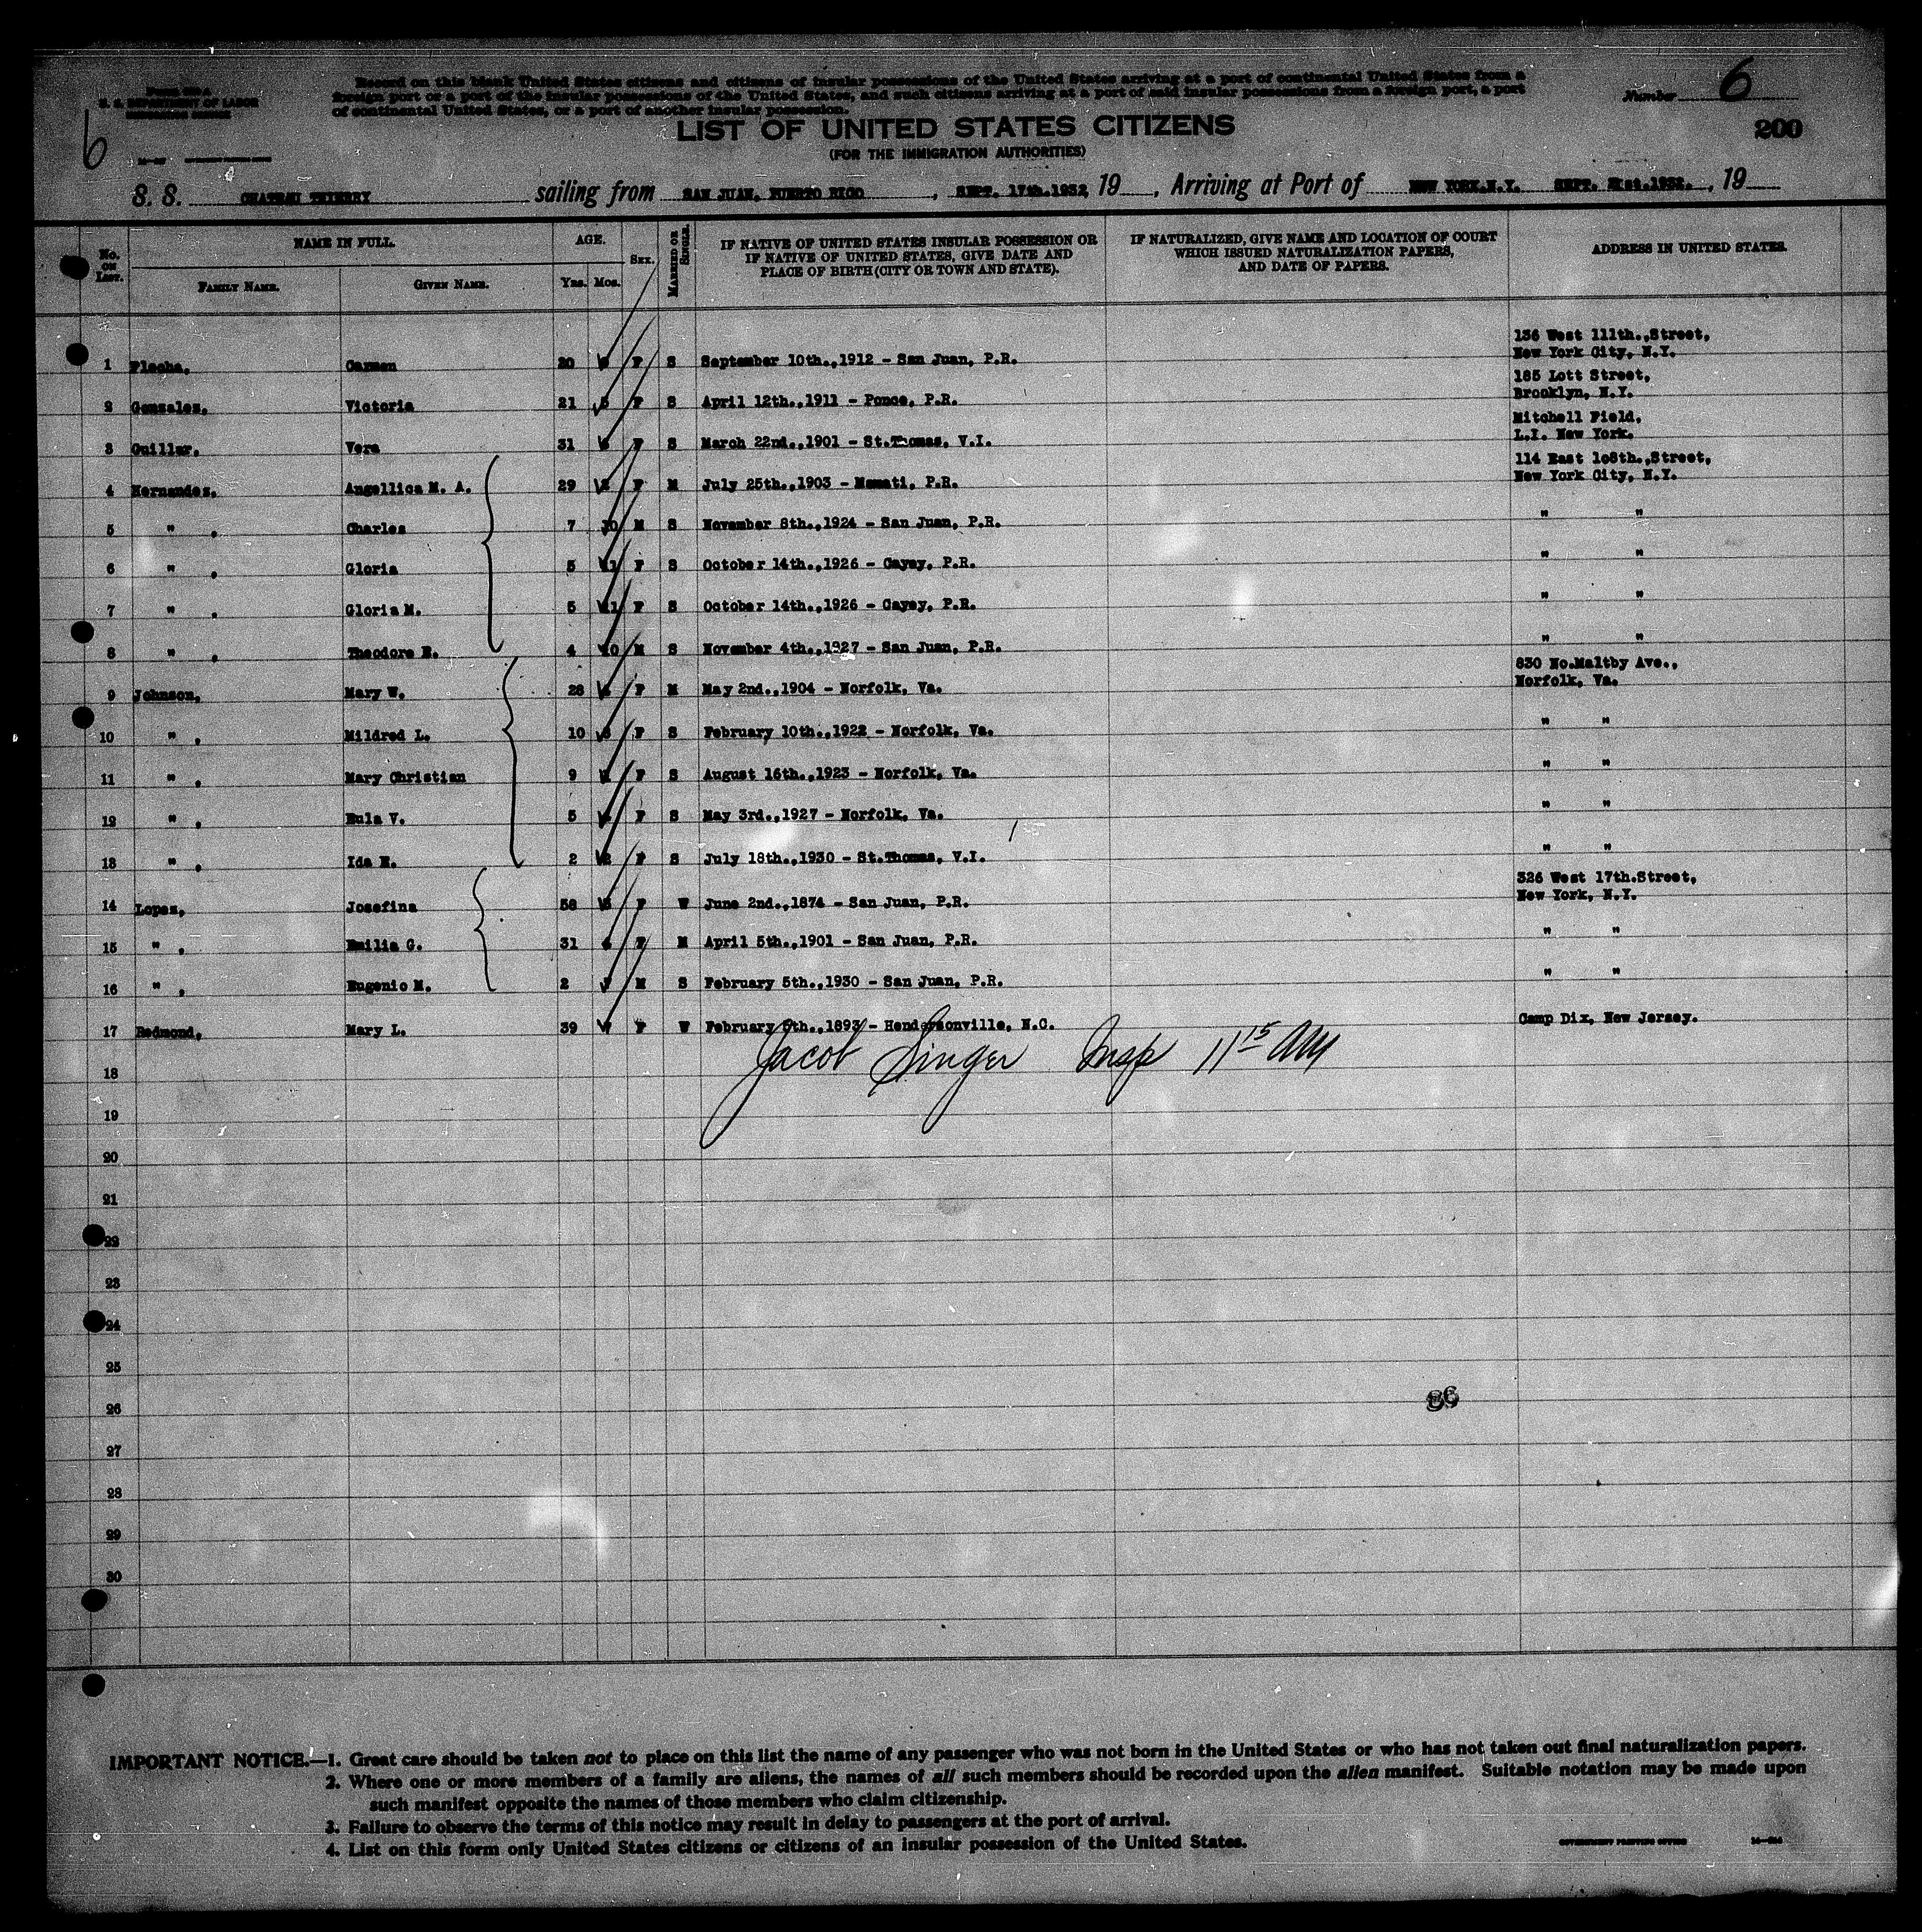 U. S. DEPARTMENT OF LABOR
IMMIGRATION SERVICE
Record on this blank United States citizens and citizens of insular possessions of the United States arriving at a port of continental United States from a
foreign port or a port of the insular possessions of the United States, and such citizens arriving at a port of said insular possessions from a foreign port, a port
of continental United States, or a port of another insular possession.
Number 6
6
200
LIST OF UNITED STATES CITIZENS
(FOR THE IMMIGRATION AUTHORITIES)
S. S. CHATEAU THIERRY sailing from SAN JUAN, PUERTO RICO , SEPT. 17th.1932, 19 , Arriving at Port of NEW YORK.N.Y. SEPT. 21st.1932. , 19
No. on List. NAME IN FULL. AGE. Sex. Married or Single. IF NATIVE OF UNITED STATES INSULAR POSSESSION OR IF NATIVE OF UNITED STATES, GIVE DATE AND PLACE OF BIRTH (CITY OR TOWN AND STATE). IF NATURALIZED, GIVE NAME AND LOCATION OF COURT WHICH ISSUED NATURALIZATION PAPERS, AND DATE OF PAPERS. ADDRESS IN UNITED STATES.
Family Name. Given Name. Yrs. Mos.
136 West 111th.,Street,
1 Flecha, Carmen 20 F S September 10th.,1912 - San Juan, P.R. New York City, N.Y.
185 Lott Street,
2 Gonzales, Victoria 21 5 F S April 12th.,1911 - Ponce, P.R. Brooklyn, N.Y.
Mitchell Field,
3 Guillar, Vera 31 F S March 22nd.,1901 - St.Thomas, V.I. L.I. New York.
114 East 108th.,Street,
4 Hernandez, Angellica M. A. 29 F M July 25th.,1903 - Manati, P.R. New York City, N.Y.
5 " , Charles 7 10 M S November 8th.,1924 - San Juan, P.R. " "
6 " , Gloria 5 11 F S October 14th.,1926 - Cayey, P.R. " "
7 " , Gloria M. 5 11 F S October 14th.,1926 - Cayey, P.R. " "
8 " , Theodore R. 4 10 M S November 4th.,1927 - San Juan, P.R. " "
830 No.Maltby Ave.,
9 Johnson, Mary W. 28 F M May 2nd.,1904 - Norfolk, Va. Norfolk, Va.
10 " , Mildred L. 10 F S February 10th.,1922 - Norfolk, Va. " "
11 " , Mary Christian 9 F S August 16th.,1923 - Norfolk, Va. " "
12 " , Eula V. 5 F S May 3rd.,1927 - Norfolk, Va. " "
13 " , Ida E. 2 2 F S July 18th.,1930 - St.Thomas, V.I. " "
326 West 17th.Street,
14 Lopez, Josefina 58 3 F W June 2nd.,1874 - San Juan, P.R. New York, N.Y.
15 " , Emilia G. 31 F M April 5th.,1901 - San Juan, P.R. " "
16 " , Eugenio M. 2 7 M S February 5th.,1930 - San Juan, P.R. " "
17 Redmond, Mary L. 39 F W February 5th.,1893 - Hendersonville, N.C. Camp Dix, New Jersey.
Jacob Singer Insp 11 15 AM
18
19
20
21
22
23
24
25
26
27
28
29
30
IMPORTANT NOTICE.—1. Great care should be taken not to place on this list the name of any passenger who was not born in the United States or who has not taken out final naturalization papers.
2. Where one or more members of a family are aliens, the names of all such members should be recorded upon the alien manifest. Suitable notation may be made upon
such manifest opposite the names of those members who claim citizenship.
3. Failure to observe the terms of this notice may result in delay to passengers at the port of arrival.
4. List on this form only United States citizens or citizens of an insular possession of the United States.
GOVERNMENT PRINTING OFFICE